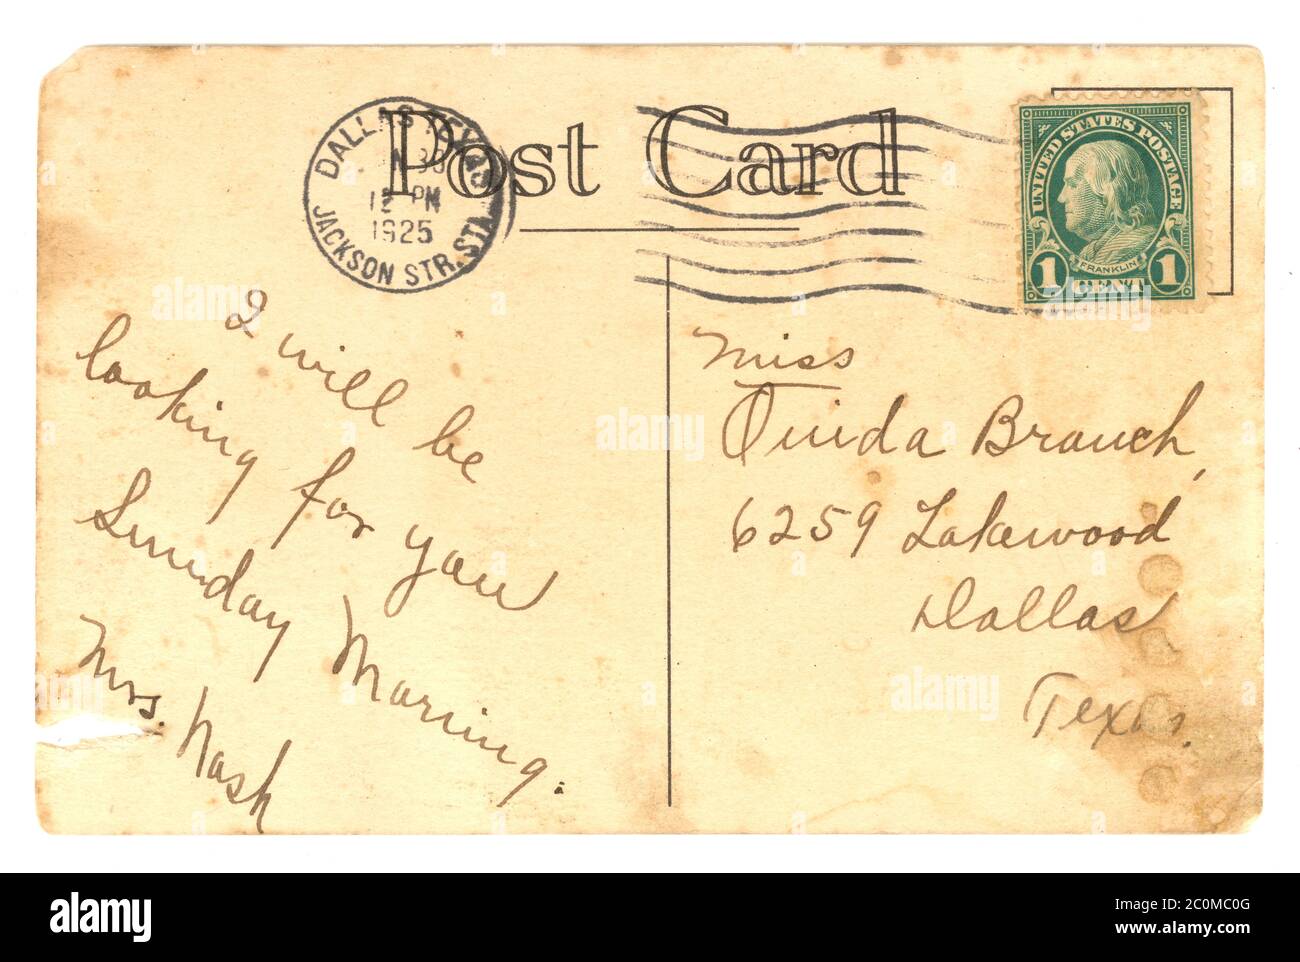 Post Card
DALLAS, TEXAS
30
12 PM
1925
JACKSON STR. STA.
UNITED STATES POSTAGE
FRANKLIN
1 CENT 1
I will be
looking for you
Sunday Morning.
Mrs. Nash
Miss
Ouida Branch,
6259 Lakewood
Dallas
Texas.
alamy
alamy
Image ID: 2C0MC0G
www.alamy.com